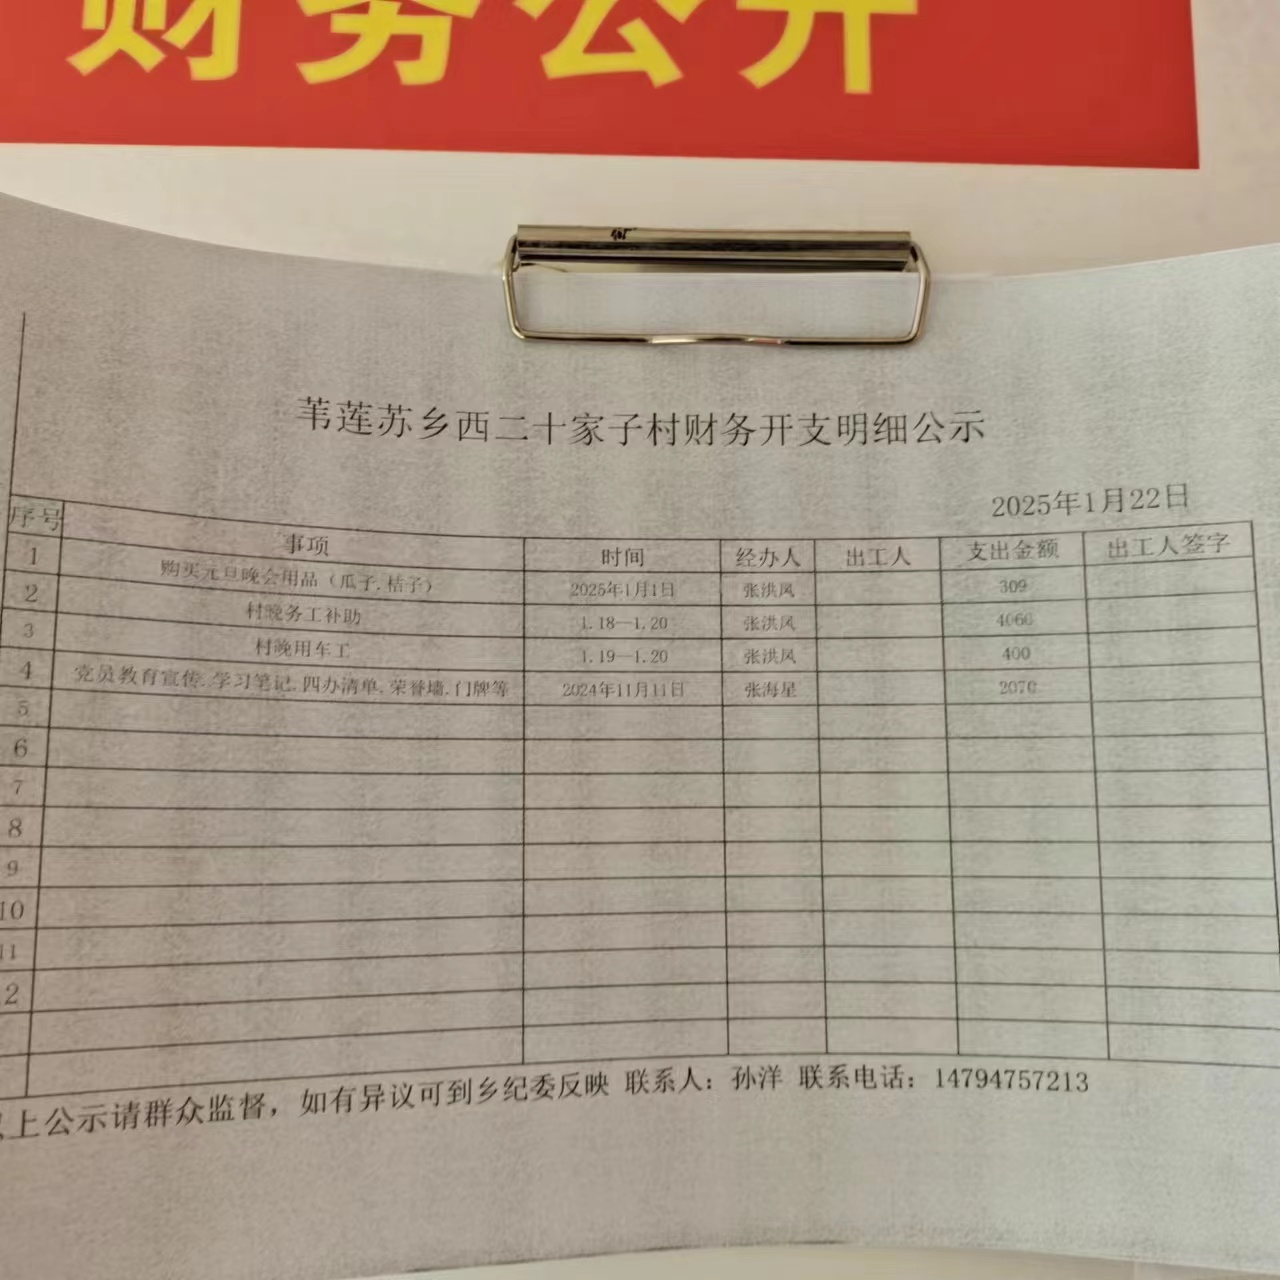 财务公开
苇莲苏乡西二十家子村财务开支明细公示
2025年1月22日
序号 事项 时间 经办人 出工人 支出金额 出工人签字
1 购买元旦晚会用品（瓜子.桔子） 2025年1月1日 张洪凤 309
2 村晚务工补助 1.18—1.20 张洪凤 4060
3 村晚用车工 1.19—1.20 张洪凤 400
4 党员教育宣传.学习笔记.四办清单.荣誉墙.门牌等 2024年11月11日 张海星 2070
5
6
7
8
9
10
11
2
上公示请群众监督，如有异议可到乡纪委反映 联系人：孙洋 联系电话：14794757213